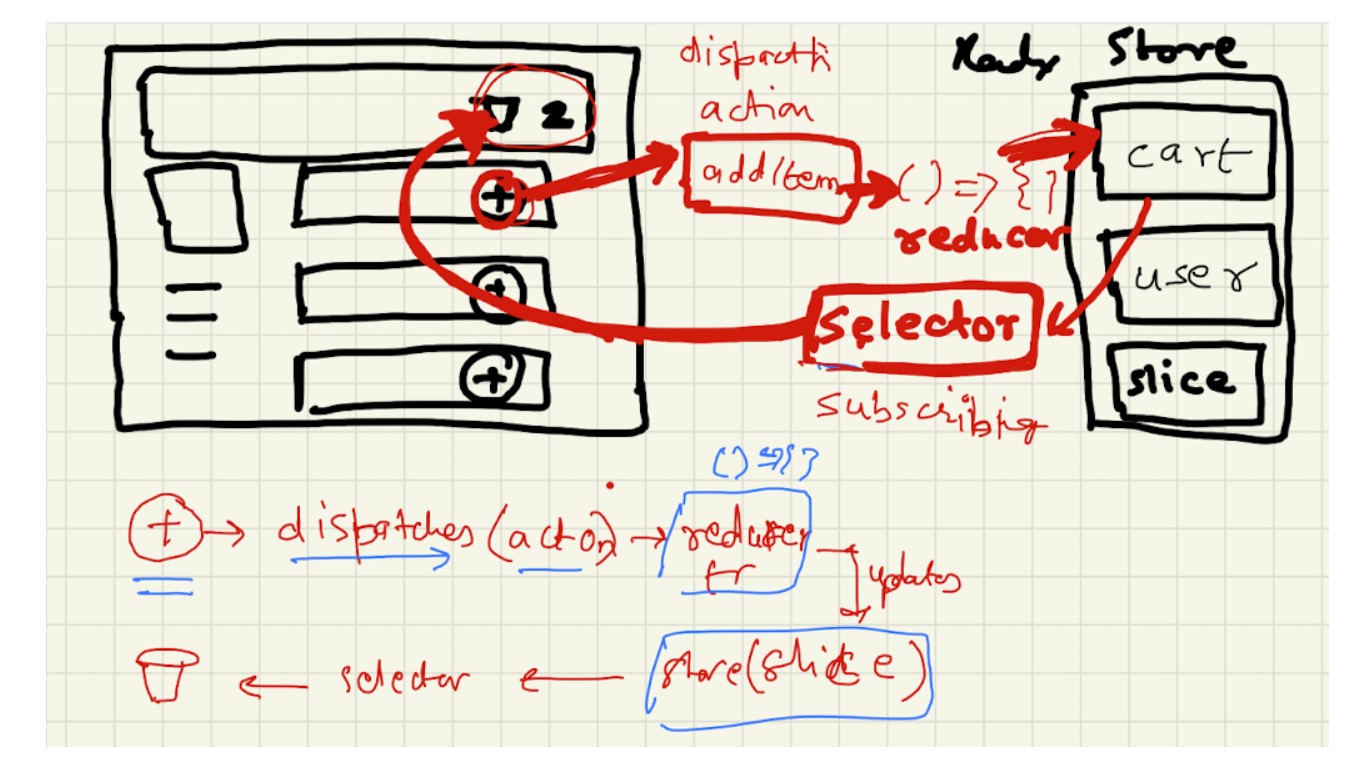 dispacth
action
2
+
addItem
() => {}
reducer
Store
cart
user
slice
+
+
selector
subscribing
() => {}
+ → dispatches (action) → reducer
fr
updates
← selector ← store(slice)